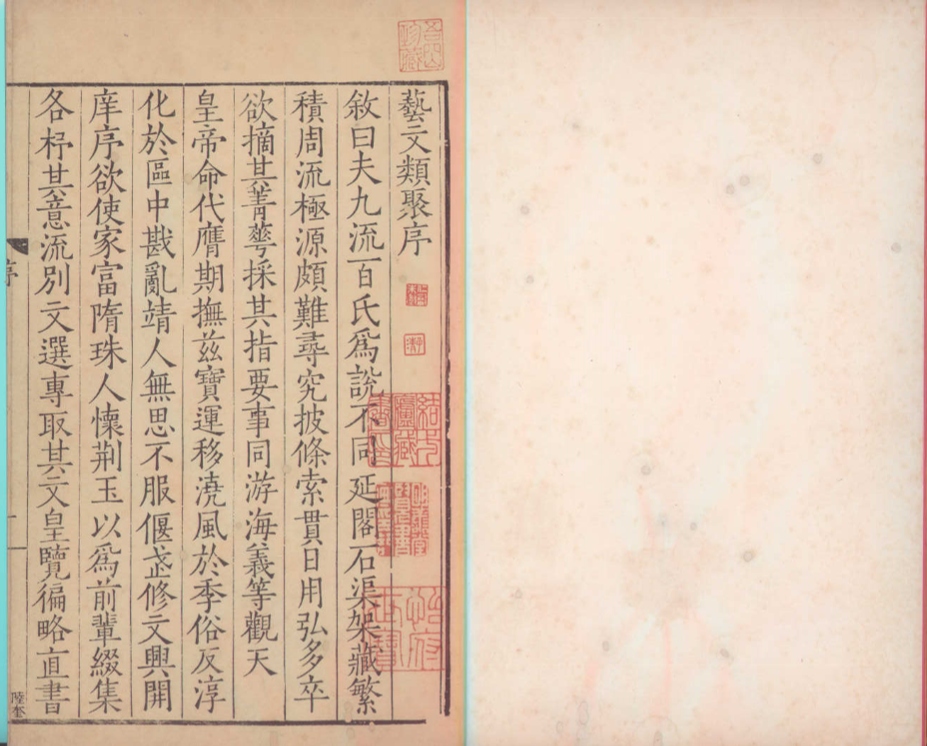 藝文類聚序
敘曰夫九流百氏爲說不同延閣石渠架藏繁
積周流極源頗難尋究披條索貫日用弘多卒
欲摘其菁華採其指要事同游海義等觀天
皇帝命代膺期撫茲寶運移澆風於季俗反淳
化於區中戡亂靖人無思不服偃武修文興開
庠序欲使家富隋珠人懷荆玉以爲前輩綴集
各杼其意流別文選專取其文皇覽徧略直書
序
陸奎